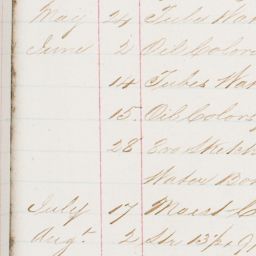 May 24 Tubes Wat
June 2 Oil Colors
14 Tubes Wat
15. Oil Colors
28 Sketch
Water Bo
July 17 Moist C
Augt 2 Str